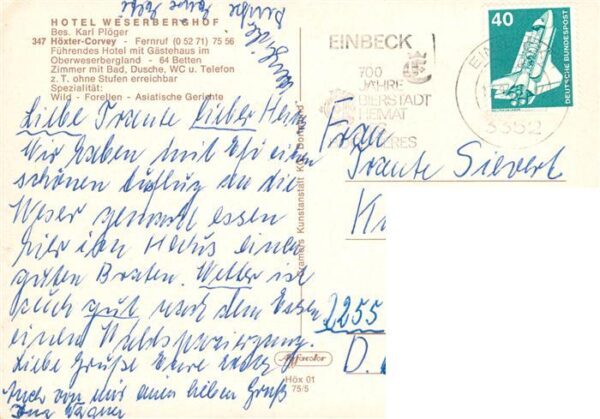 HOTEL WESERBERGHOF
Bes. Karl Plöger
347 Höxter-Corvey - Fernruf (0 52 71) 75 56
Führendes Hotel mit Gästehaus im
Oberweserbergland - 64 Betten
Zimmer mit Bad, Dusche, WC u. Telefon
z. T. ohne Stufen erreichbar
Spezialität:
Wild - Forellen - Asiatische Gerichte
Liebe Traute Lieber
Wir haben mit einen
schönen Ausflug an die
Weser gemacht essen
hier im Haus einen
guten Braten. Wetter ist
auch gut nach dem Essen
einen Waldspaziergang.
Liebe Grüße Eure
Auch von mir einen lieben Gruß
Cramers Kunstanstalt KG, Dortmund
Höx 01
75/5
EINBECK
700
JAHRE
BIERSTADT
HEIMAT
3352
40
DEUTSCHE BUNDESPOST
Frau
Traute Sievert
2255
D.